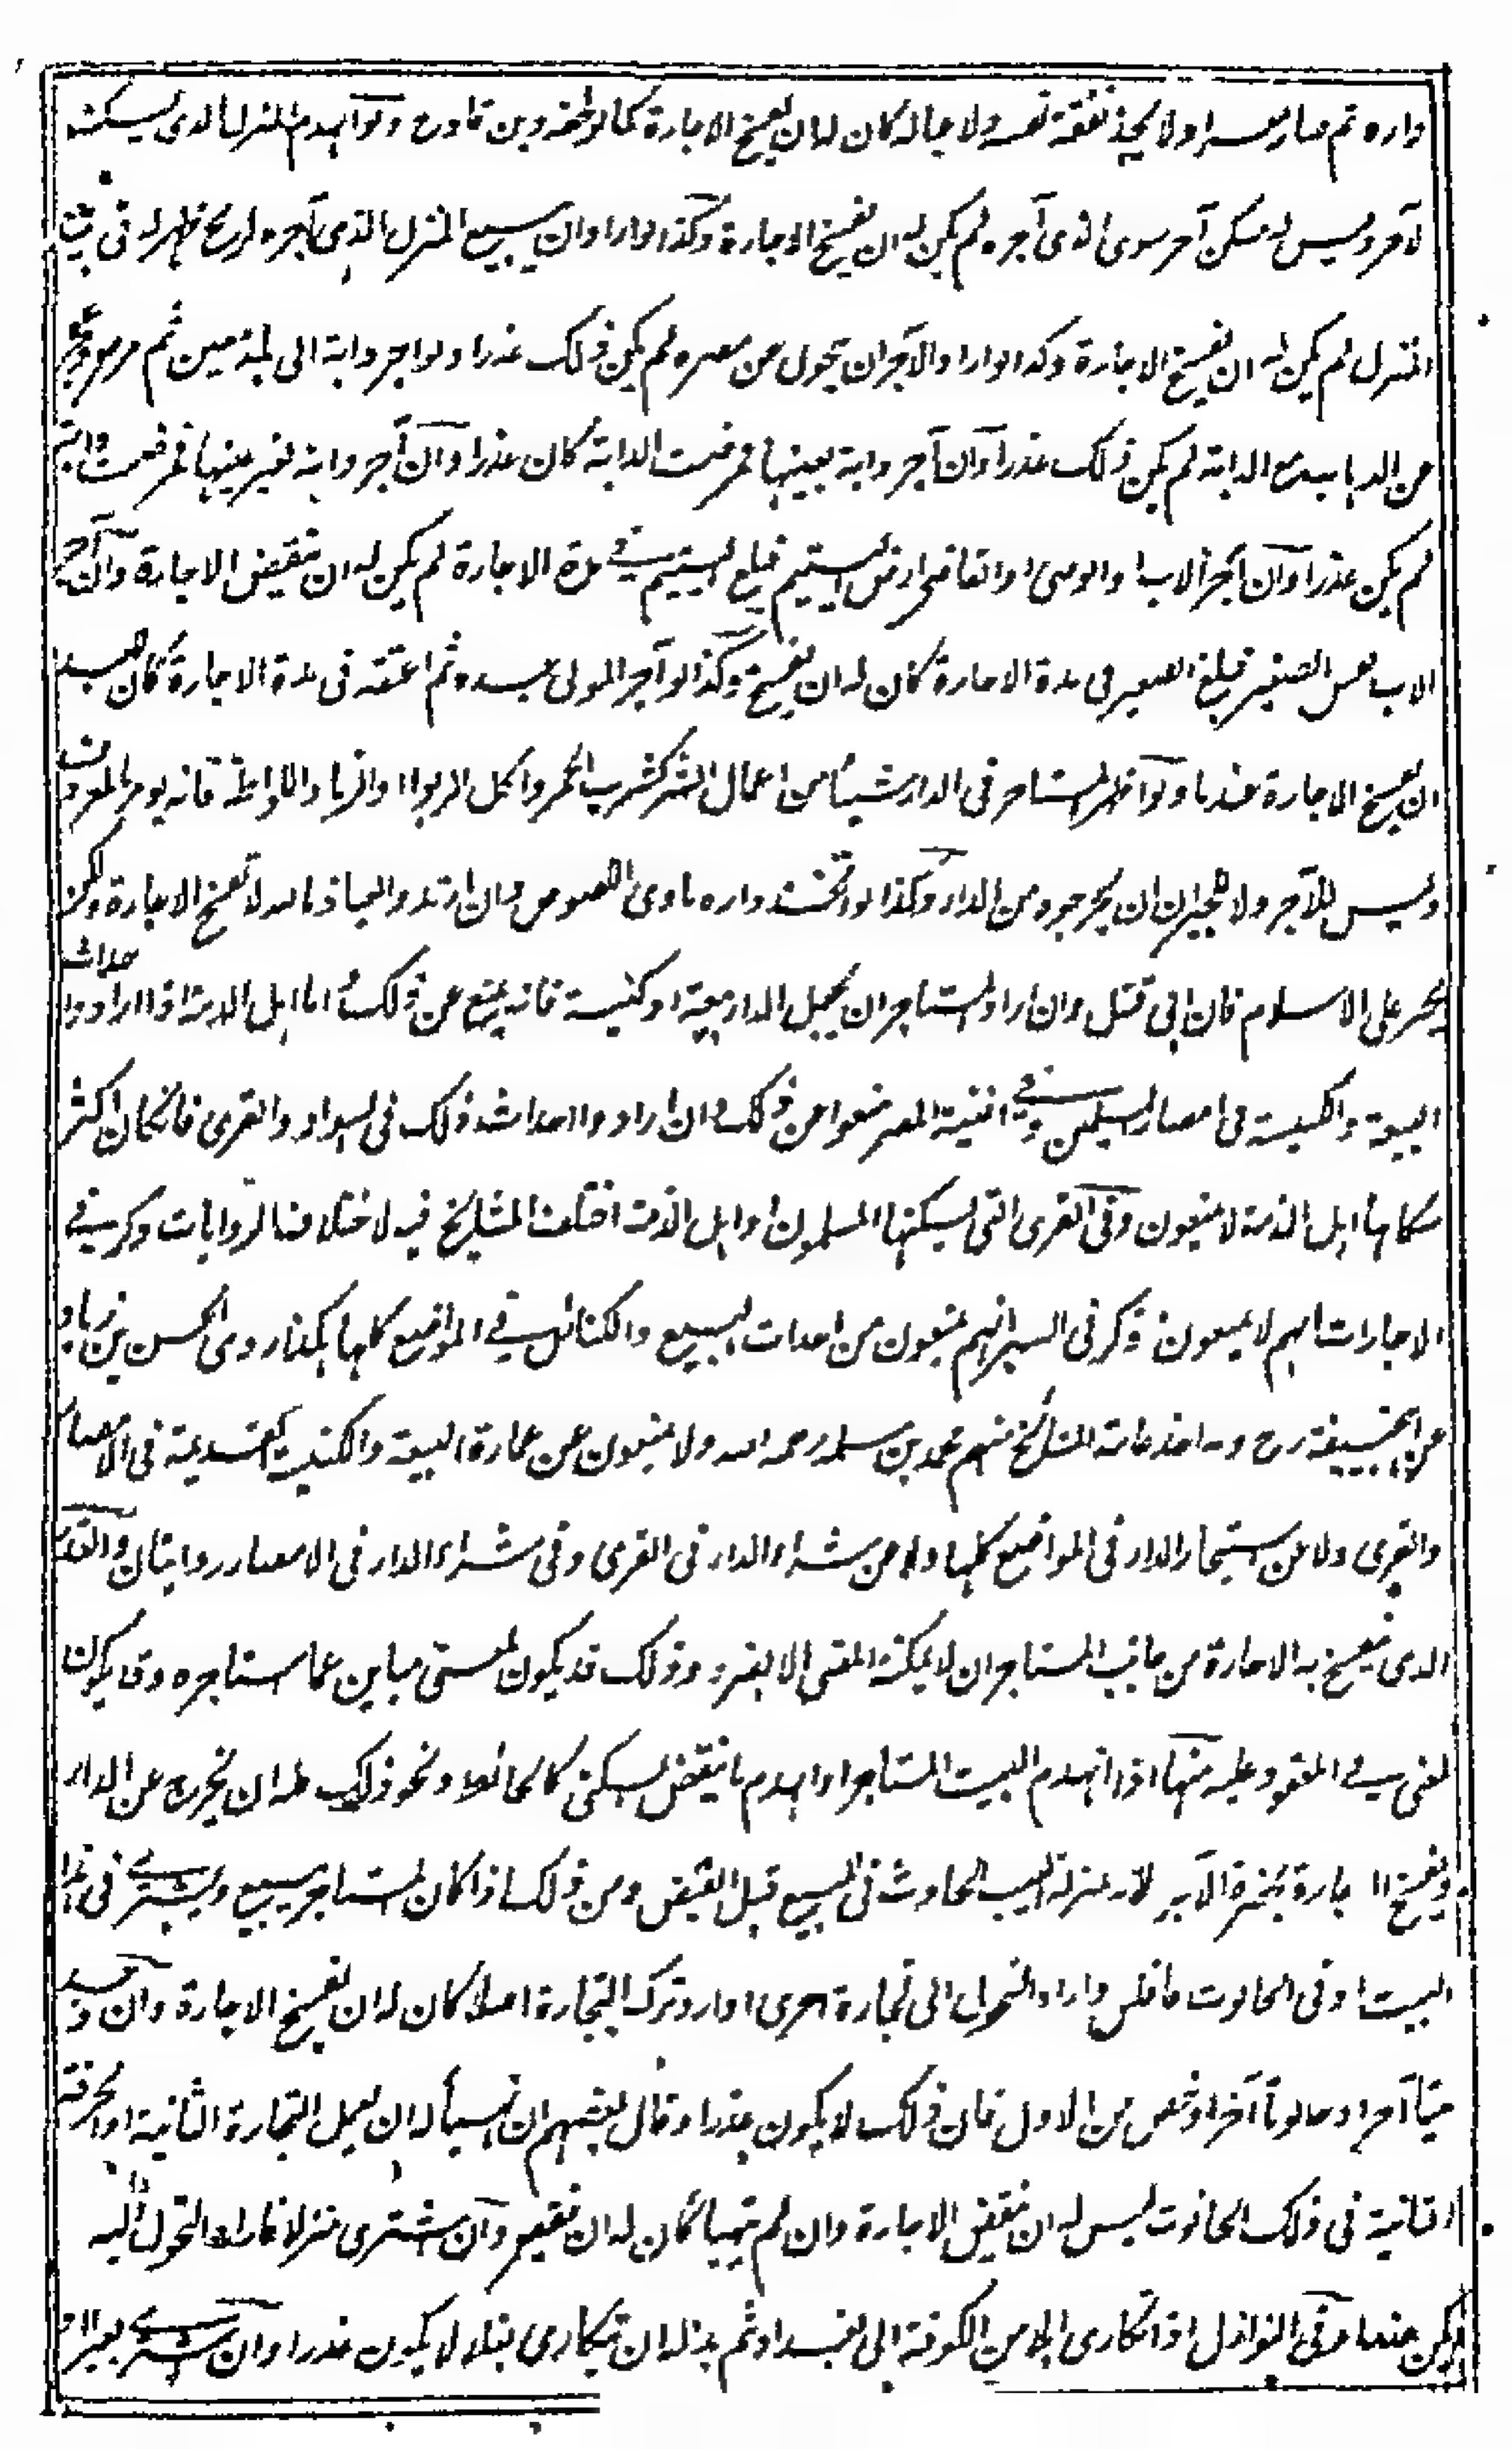 داره ثم صار معسرا ولا يجد نفقة نفسه ولا عياله كان له ان يفسخ الاجارة كما لو لحقه دين فادح ولو انهدم المنزل الذي يسكنه
الآجر وليس له مسكن آخر سوى الذي آجره لم يكن له ان يفسخ الاجارة وكذا لو اراد ان يبيع المنزل الذي آجره لربح ظهر له في
المنزل لم يكن له ان يفسخ الاجارة وكذا لو اراد الآجر ان يتحول عن مصره لم يكن ذلك عذرا ولو اجر دابة الى بلدة معين ثم مرض وعجز
عن الذهاب مع الدابة لم يكن ذلك عذرا وان آجر دابة بعينها فمرضت الدابة كان عذرا وان آجر دابة بغير عينها فمرضت دابته
لم يكن عذرا وان آجر الاب او الوصي او القاضي ارض اليتيم فبلغ اليتيم في مدة الاجارة لم يكن له ان ينقض الاجارة وان آجر
الاب نفس الصغير فبلغ الصغير في مدة الاجارة كان له ان يفسخ وكذا لو آجر المولى عبده ثم اعتقه في مدة الاجارة كان للعبد
ان يفسخ الاجارة عندنا ولو اظهر المستاجر في الدار شيئا من اعمال الشر كشرب الخمر واكل الربوا والزنا واللواطة فانه يومر بالمعروف
وليس للآجر ولا للجيران ان يخرجوه من الدار وكذا لو اتخذ داره ماوى اللصوص وان ارتد والعياذ بالله لا تفسخ الاجارة ولكن
يجبر على الاسلام فان ابى قتل وان اراد المستاجر ان يجعل الدار بيعة او كنيسة فانه يمنع عن ذلك اما اهل الذمة اذا ارادوا احداث
البيعة والكنيسة في امصار المسلمين وفي افنية المصر منعوا عن ذلك وان ارادوا احداث ذلك في السواد والقرى فان كان اكثر
سكانها اهل الذمة لا يمنعون وفي القرى التي يسكنها المسلمون او اهل الذمة اختلف المشايخ فيه لاختلاف الروايات وذكر في
الاجارات انهم لا يمنعون وذكر في السير انهم يمنعون من احداث البيع والكنائس في المواضع كلها هكذا روى الحسن بن زياد
عن ابي حنيفة رح وبه اخذ عامة المشايخ منهم محمد بن سلمة رحمه الله ولا يمنعون عن عمارة البيعة والكنيسة القديمة في الامصار
والقرى ولا عن استيجار الدار في المواضع كلها ولا عن شراء الدار في القرى وفي شراء الدار في الامصار روايتان والعذر
الذي يفسخ به الاجارة من جانب المستاجر ان لا يمكنه المضي الا بضرر وذلك قد يكون لمعنى مباين عما استاجره وقد يكون
لمعنى في المعقود عليه منها اذا انهدم البيت المستاجر او انهدم ما ينقض السكنى كالحائط ونحو ذلك له ان يخرج عن الدار
ويفسخ الاجارة بحضرة الآجر لانه بمنزلة العيب الحادث في البيع قبل القبض ومن ذلك اذا كان المستاجر يبيع ويشتري في هذا
البيت او في الحانوت فافلس واراد التحول الى تجارة اخرى او اراد ترك التجارة اصلا كان له ان يفسخ الاجارة وان وجد
بيتا آخر او حانوتا آخر ارخص من الاول فان ذلك لا يكون عذرا وقال بعضهم ان تهيأ له ان يعمل التجارة الثانية او الحرفة
الثانية في ذلك الحانوت ليس له ان ينقض الاجارة وان لم يتهيأ كان له ان ينقض وان اشترى منزلا فاراد التحول اليه
لم يكن عذرا وفي النوازل اذا تكارى ابلا من الكوفة الى بغداد ثم بدا له ان يتكارى بغلا لا يكون عذرا وان اشترى بعيرا